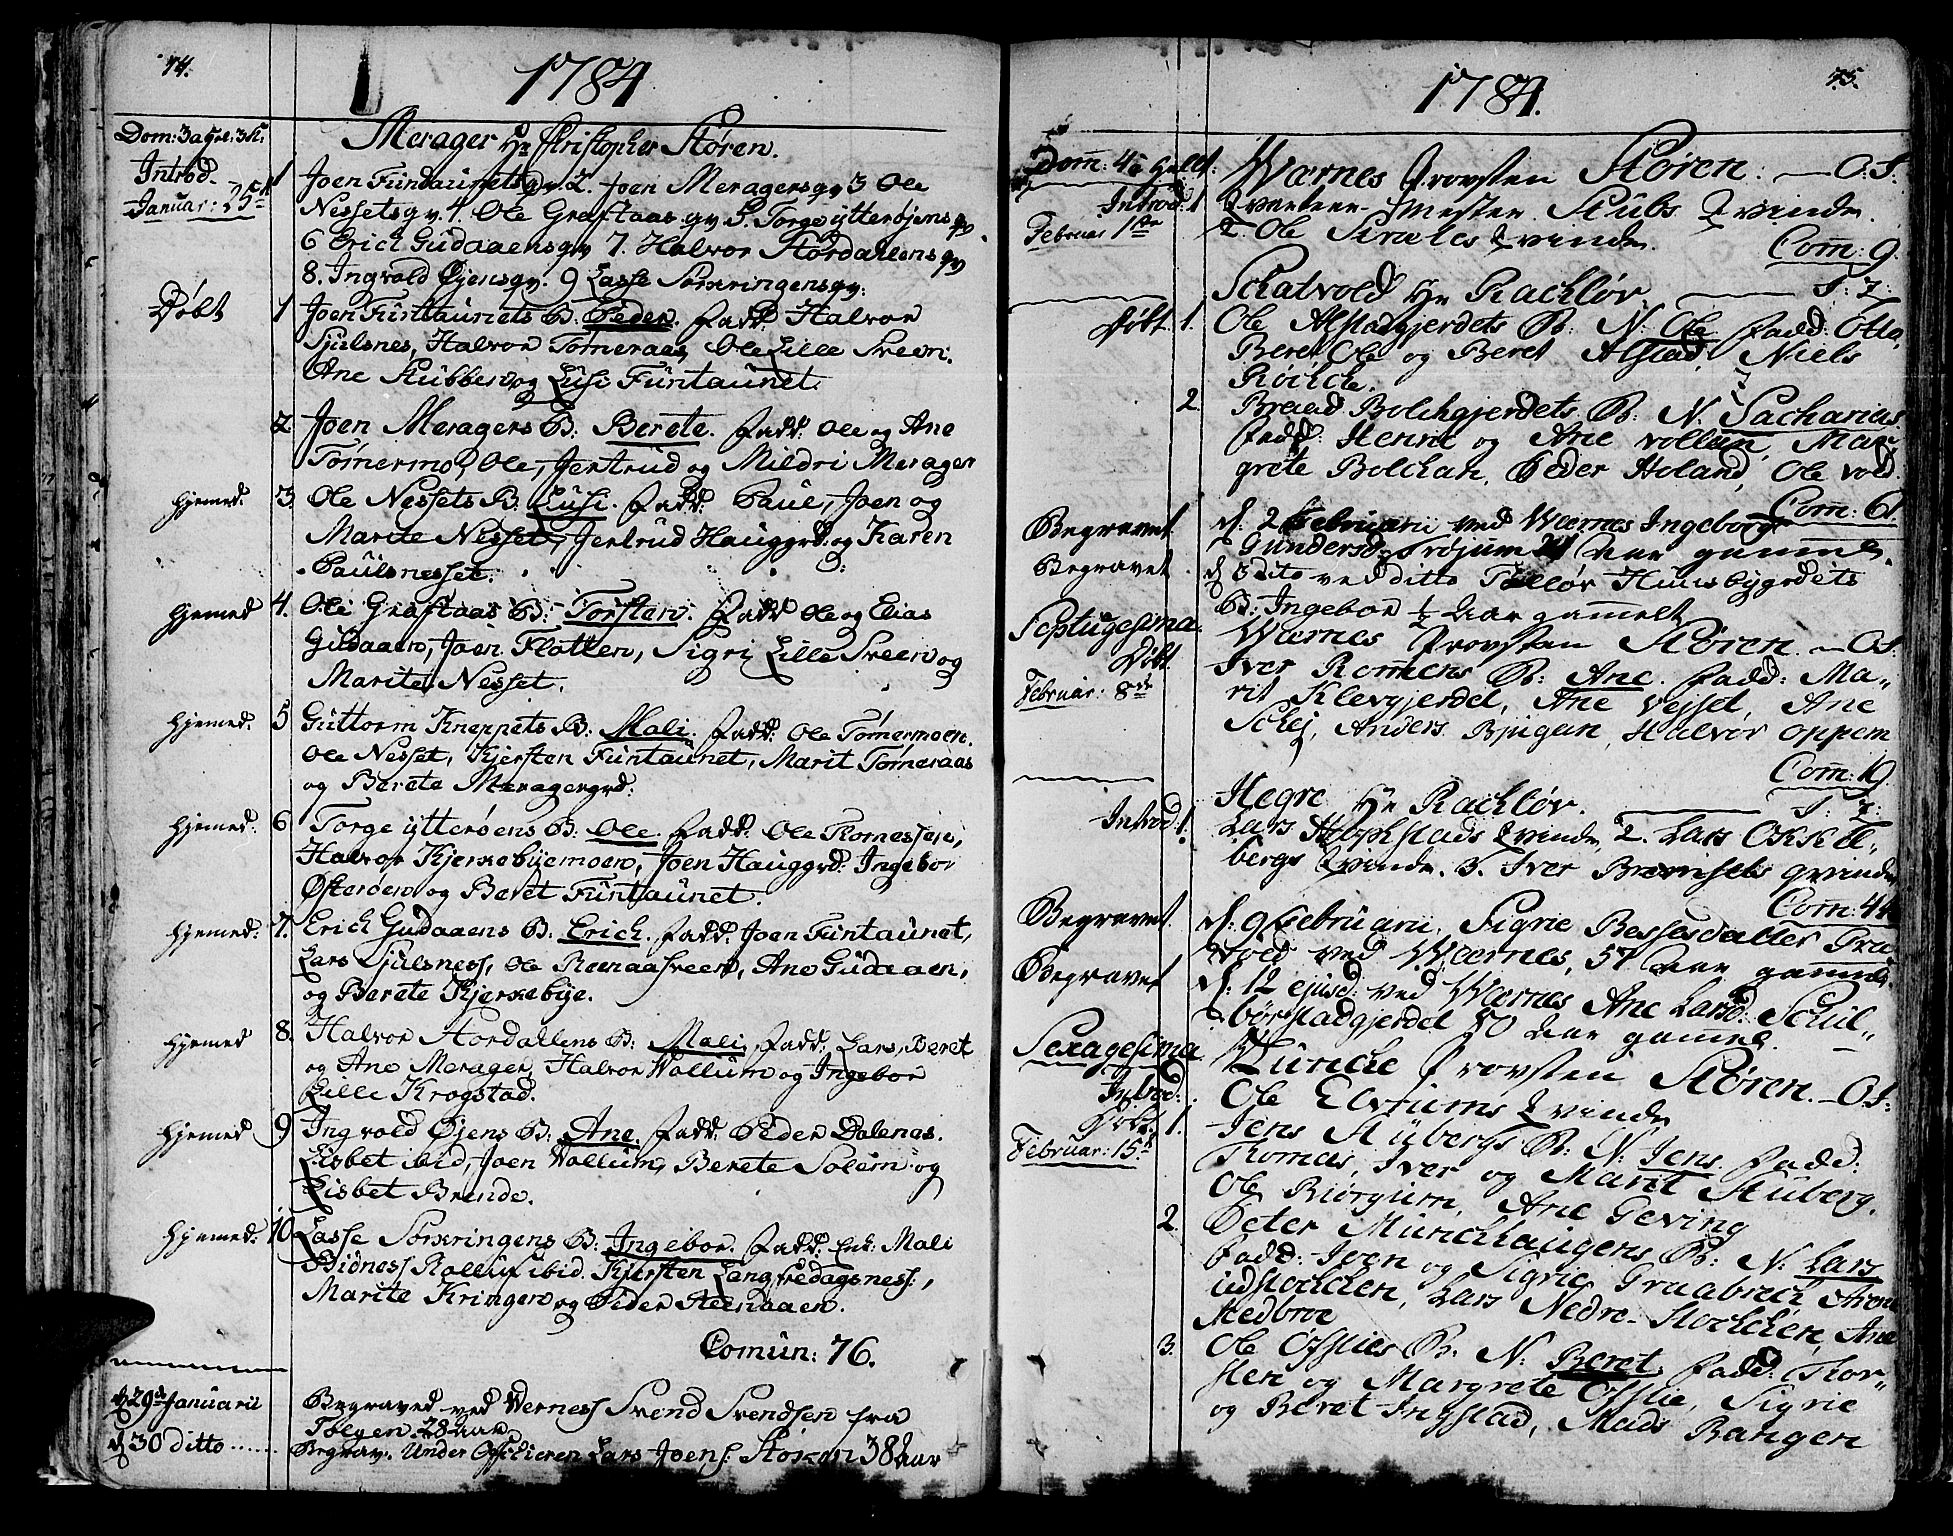 74.
1784
Dom: 3 a
Introd.
Januar: 25de
Merager Hr Christopher Støren.
1 Joen Fundaunets qv. 2. Joen Meragers qv 3 Ole
Nessets qv. 4. Ole Græftaas qv 5. Torge ytterøiens qv
6 Erich Gudaaens qv 7. Halvor Stordahlens qv
8. Ingvold Øjens qv. 9 Lasse Sorkringens qv:
Døbt 1 Joen Funtaunets B. Peder. Fadd: Halvor
Sjulsnes, Halvor Tømeraas, Ole Lille Sveen.
Ane Stubbe og Lusi Funtaunet.
2 Joen Meragers B: Berete. Fadd: Ole og Ane
Tømermo, Ole, Jertrud og Mildri Merager
hjemed: 3. Ole Nessets B: Lusi. Fadd: Paul, Joen og
Marite Nesset, Jertrud Hauggrd: og Karen
Paulsnesset.
hjemed 4. Ole Græftaas B: Torsten. Fadd Ole og Elias
Gudaaen, Joen Flotten, Sigri Lille Sveen og
Marite Nesset.
hjemed. 5 Guttorm Kneppets B: Mali. Fadd: Ole Tømermoen.
Ole Nesset, Kjersten Funtaunet, Marit Tømeraas
og Berete Meragergrd:
hjemed. 6 Torge ytterøens B: Ole. Fadd: Ole Tomessen,
Halvor Kjerkebyemoen, Joen Hauggrd: Ingebor
Østerøen og Beret Funtaunet.
hjemed: 7. Erich Gudaaens B: Erich. Fadd: Joen Funtaunet,
Lars Sjulsness, Ole Roenaasveen, Ane Gudaaen,
og Berete Kjerkebye.
hjemed 8. Halvor Stordallens B: Mali. Fadd: Lars, Beret
og Ane Merager, Halvor Wollum og Ingebor
Lille Krogstad.
hjemed 9 Ingvold Øjens B: Ane. Fadd: Peder Dalenas.
Lisbet ibid, Joen Wollum, Berete Solem og
Lisbet Brende.
hjemed. 10. Lasse Sorkringens B: Ingebor. Fadd: Enk: Mali
Bidness ibid. Kjersten Langvedagsness:,
Marite Kringen og Peder Steenaaen.
Comun: 76.
d 29de Januarii Begraved ved Werness Svend Svendsen fra
Tolgen 28 aar.
d 30 ditto ...... Begrav. Under Officieren Lars Joens: 38 aar
75.
1784.
Dom: 4de Wærnes Provsten Støren. — O. S.
Introd: 1 Qvarteer-Mester Stubs Qvinde.
Februar 1ste 2. Ole Qvinde.
Com: 9.
Schatvold Hr Rachløv. — T: 2:
Døbt. 1. Ole Alstadgjerdets B: N: Ole Fadd: Otto,
Beret, Ole og Beret Alstad, Niels
Røiche.
2. Braad Bolchgjerdets B: N: Sacharias.
Fadd: Henric og Ane vollan, Mar-
grete Bolchan, Peder Holand, Ole vold.
Com: 61.
Begravet d: 2 Februarii ved Wærnes Ingeborg
Gundersd: aar gammel.
Begravet d 3 dito ved ditto Tolløv Huusbygrdets
B: Ingebor ½ Aar gammelt
Septugesima Wærnes Provsten Støren. — O. S.
Døbt Iver Rommens B: Ane. Fadd: Ma-
Februar: 8de rit Klevgjerdet, Ane Vejset, Ane
Schej, Anders Bjugan, Halvor oppem
Com: 19.
Hegre Hr Rachløv. — T: 2:
Introd: 1. Lars Hophstads Qvinde, 2. Lars Okkel-
bergs Qvinde. 3. Iver Qvinde
Com: 44
Begravet. d: 9 Februarii. Sigrie Bessesdatter
vold ved Wærnes, 57 Aar gammel.
Begravet d: 12 ejusd: ved Wærnes Ane Larsd: Schul-
børstadgjerdet 50 Aar gammel.
Sexagesima Lunche Provsten Støren. — O. S.
Introd: Ole Elvrums Qvinde
Døbt. 1. Jens Stubergs B: N: Jens. Fadd:
Februar: 15de Thomas, Iver og Marit Stuberg,
Ole Biørgum, Ane Geving
2. Peter Munchhaugens B: N: Lars
Fadd: Joen og Sigrie Gruabrech, Arne
udstochchen, Lars Nedre-Stochchen, Ane
Medbroe
3. Ole Øfsties B. N: Beret. Fadd: Thor-
sten og Margrete Øfstie, Sigrie
og Beret Ingstad, Mads Bangen